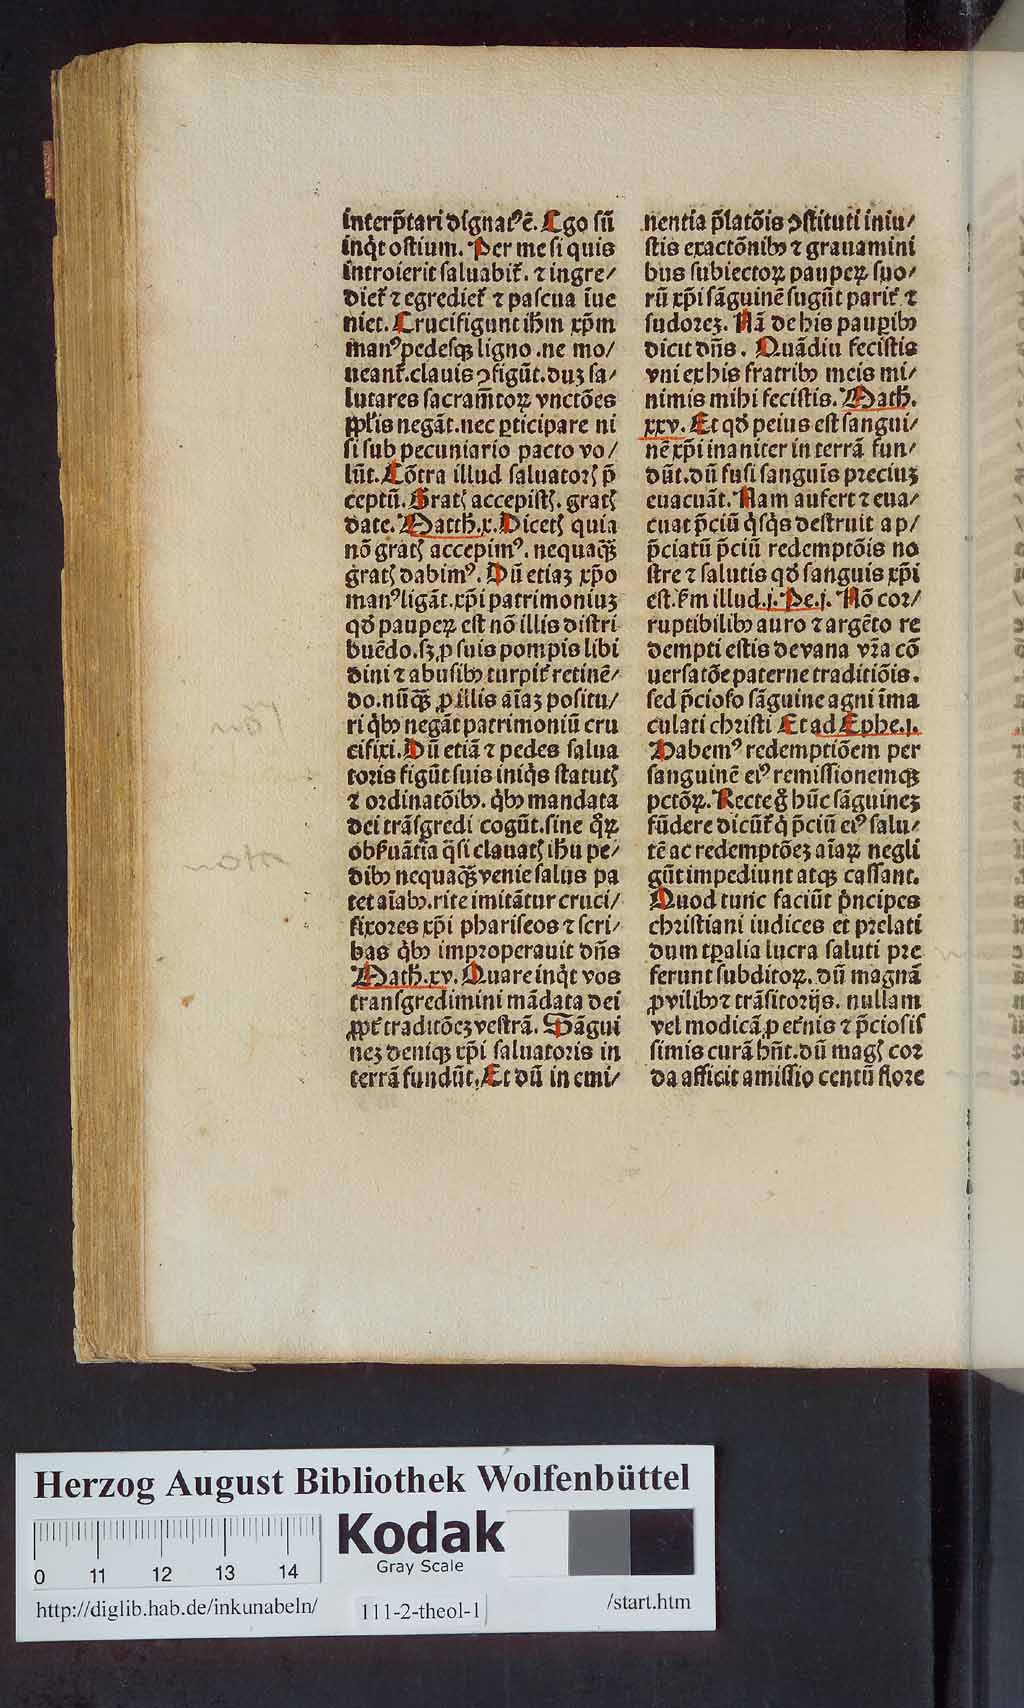 interp̃tari dignatꝰ ē. Ego sū
inq̇t ostium. Per me si quis
introierit saluabit᷑. ⁊ ingre/
diet᷑ ⁊ egrediet᷑ ⁊ pascua īue
niet. Crucifigunt ih̄m xp̄m
manꝰ pedesq; ligno .ne mo/
ueant᷑.clauis ꝯfigūt.duꝫ sa/
lutares sacram̄toꝝ vnctōes
ppl̄is negāt.nec ꝑticipare ni
si sub pecuniario pacto vo/
lūt. Cōtra illud saluatorꝭ p̄
ceptū. Gratꝭ accepistꝭ. gratꝭ
date. Matth.x. Dicetꝭ quia
nō gratꝭ accepimꝰ. nequaq̄ꝫ
gratꝭ dabimꝰ. Dū etiaꝫ xp̄o
manꝰ ligāt.xp̄i patrimoniuꝫ
qd̓ pauperꝝ est nō illis distri
buēdo.sꝫ ꝓ suis pompis libi
dini ⁊ abusibꝰ turpit᷑ retinē/
do.nūq̄ꝫ ꝓ illis aīaꝫ positu/
ri q̇bꝰ negāt patrimoniū cru
cifixi. Dū etiā ⁊ pedes salua
toris figūt suis iniq̇s statutꝭ
⁊ ordinatōibꝰ. q̇bꝰ mandata
dei trāsgredi cogūt.sine q̄ꝝ
obẜuātia q̄si clauatꝭ ih̄u pe/
dibꝰ nequaq̄ꝫ venie salus pa
tet aīabꝰ.rite imitātur cruci/
fixores xp̄i phariseos ⁊ scri/
bas q̇bꝰ improperauit dn̄s
Math.xv. Quare inq̇t vos
transgredimini mādata dei
ꝓpt᷑ traditōeꝫ vestrā. Sāgui
neꝫ deniqꝫ xp̄i saluatoris in
terrā fundūt. Et dū in emi/
nentia p̄latōis ꝯstituti iniu/
stis exactōnibꝰ ⁊ grauamini
bus subiectoꝝ pauperꝝ suo/
rū xp̄i sāguinē sugūt parit᷑ ⁊
sudorez. Nā de his pauꝑibꝰ
dicit dn̄s. Quādiu fecistis
vni ex his fratribꝰ meis mi/
nimis mihi fecistis. Math.
xxv. Et qd̓ peius est sangui/
nē xp̄i inaniter in terrā fun/
dūt.dū fusi sanguīs preciuꝫ
euacuāt. Nam aufert ⁊ eua/
cuat p̄ciū q̇sq̇s destruit ap/
p̄ciatū p̄ciū redemptōis no
stre ⁊ salutis qd̓ sanguis xp̄i
est.ẜm illud.j.Pe.j. Nō cor/
ruptibilibꝰ auro ⁊ argēto re
dempti estis de vana vr̄a cō
uersatōe paterne traditiōis.
sed p̄cioso sāguine agni īma
culati christi Et ad Ephe.j.
Habemꝰ redemptiōem per
sanguinē eiꝰ remissionemqꝫ
pctōꝝ. Recte gͦ hūc sāguinez
fūdere dicūt᷑ q̇ p̄ciū eiꝰ salu/
tē ac redemptōeꝫ aīaꝝ negli
gūt impediunt atqꝫ cassant.
Quod tunc faciūt p̓ncipes
christiani iudices et prelati
dum tꝑalia lucra saluti pre
ferunt subditoꝝ. dū magnā
ꝓ vilibꝰ ⁊ trāsitorijs. nullam
vel modicā ꝓ et᷑nis ⁊ p̄ciosis
simis curā hn̄t.dū magꝭ cor
da afficit amissio centū flore
Herzog August Bibliothek Wolfenbüttel
Kodak
Gray Scale
0 11 12 13 14
http://diglib.hab.de/inkunabeln/
111-2-theol-1
/start.htm